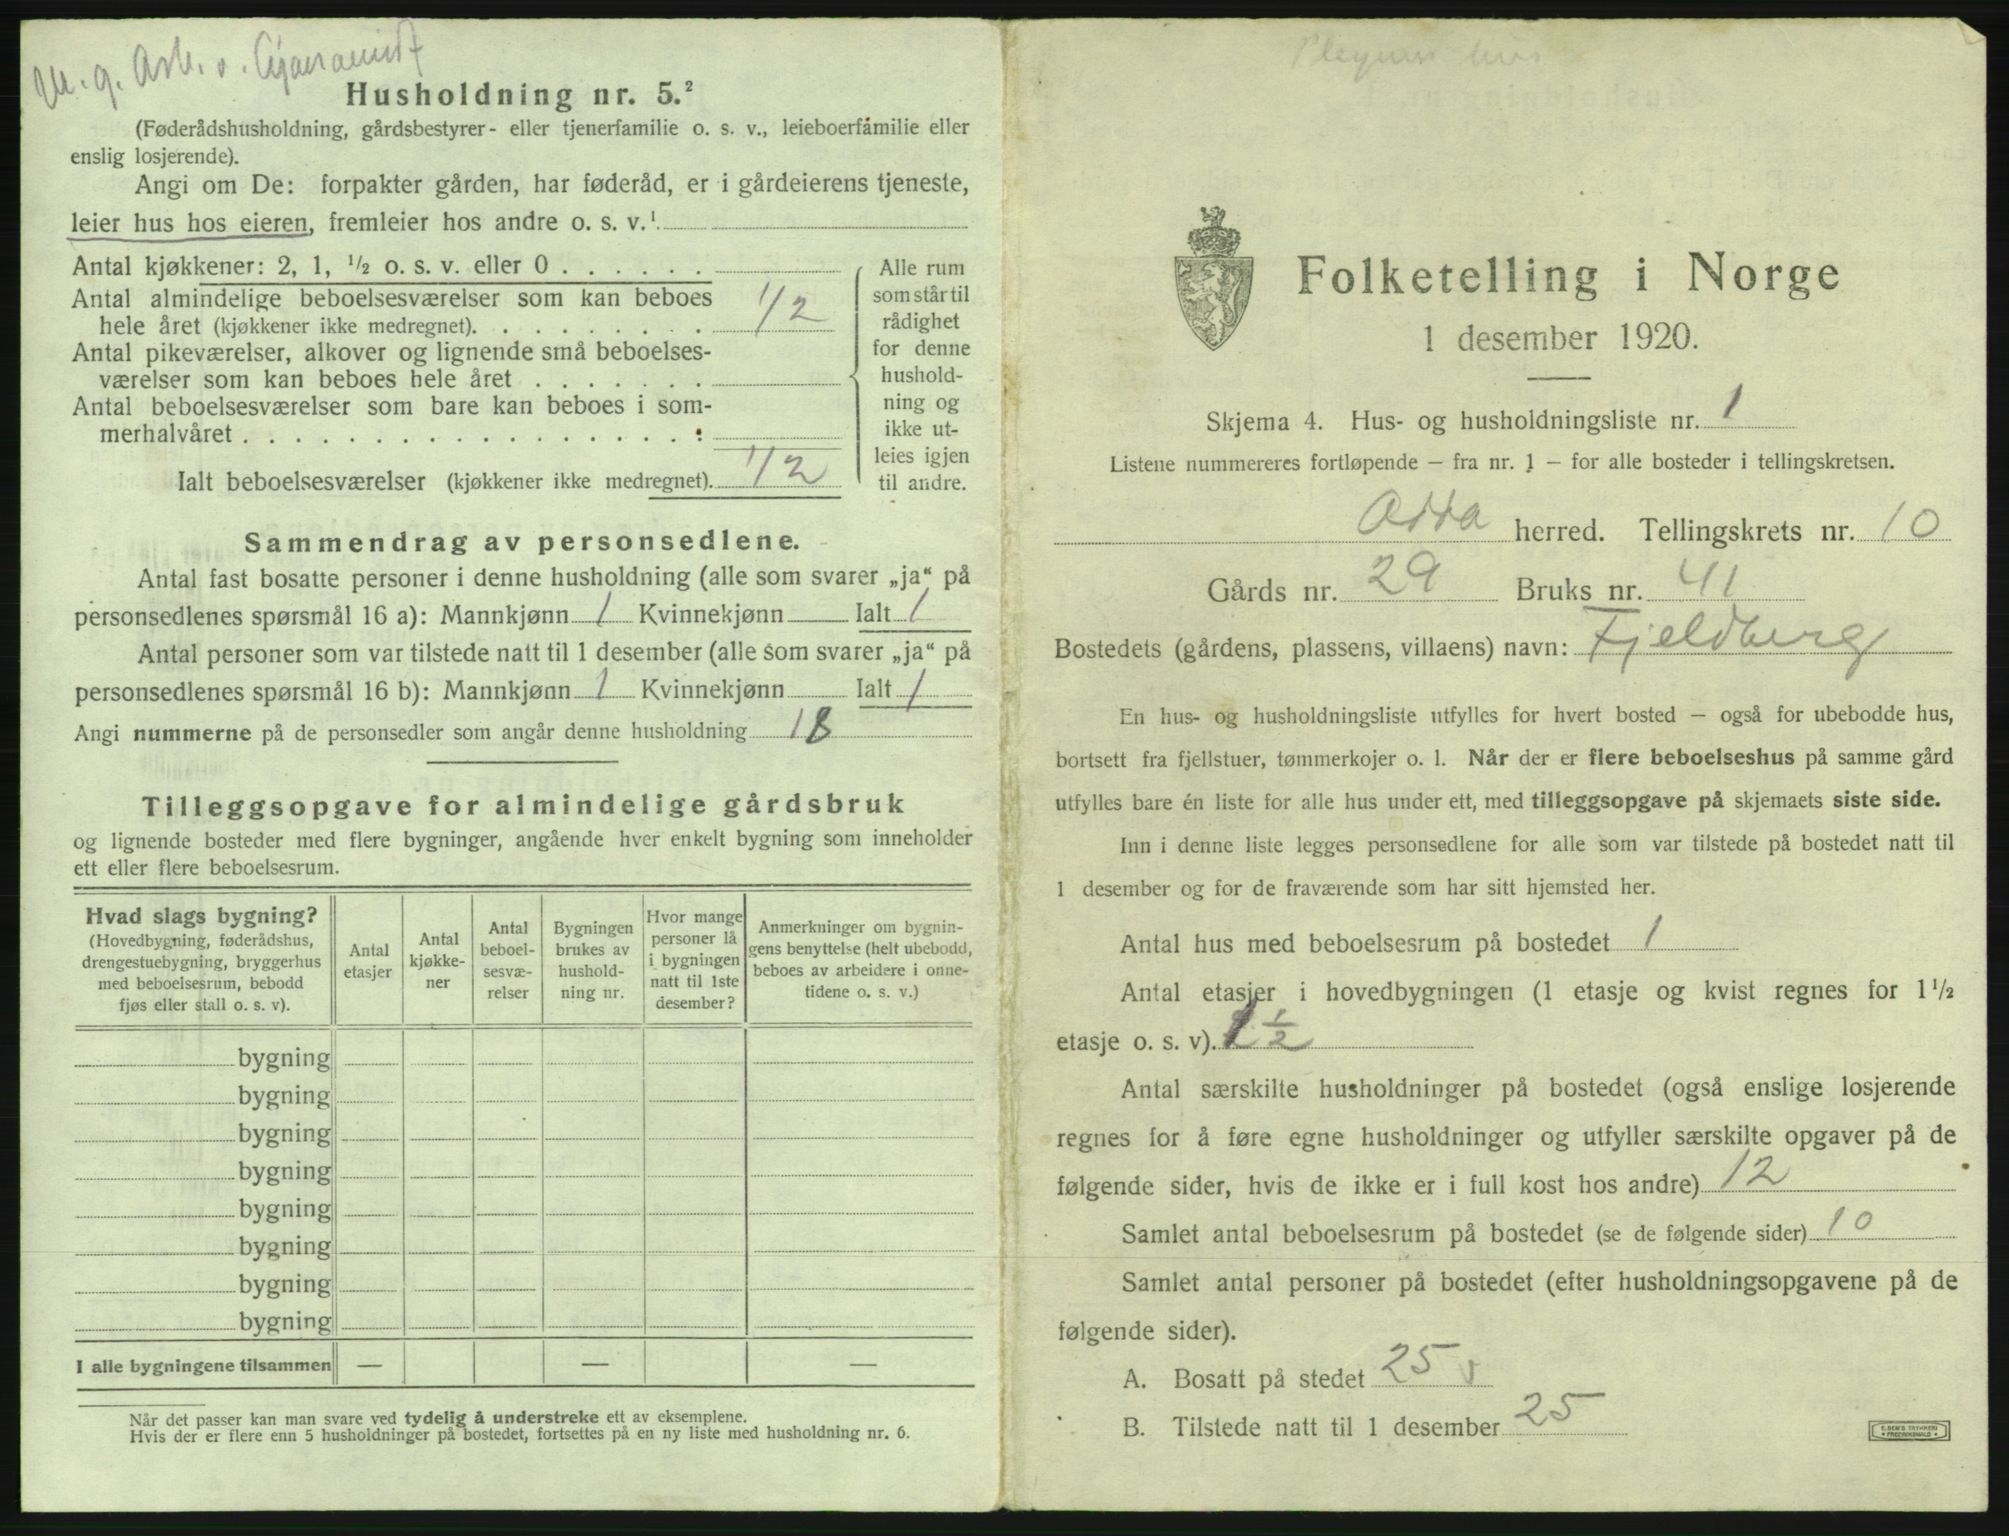 Husholdning nr. 5.²
(Føderådshusholdning, gårdsbestyrer- eller tjenerfamilie o. s. v., leieboerfamilie eller
enslig losjerende).
Angi om De: forpakter gården, har føderåd, er i gårdeierens tjeneste,
leier hus hos eieren, fremleier hos andre o. s. v.¹
Antal kjøkkener: 2, 1, ½ o. s. v. eller 0 . . . . . .
Antal almindelige beboelsesværelser som kan beboes
hele året (kjøkkener ikke medregnet). . . . . . . . . 1/2
Antal pikeværelser, alkover og lignende små beboelses-
værelser som kan beboes hele året . . . . . . .
Antal beboelsesværelser som bare kan beboes i som-
merhalvåret . . . . . . . . . . . . . . . . . .
Ialt beboelsesværelser (kjøkkener ikke medregnet). 1/2
Alle rum
som står til
rådighet
for denne
hushold-
ning og
ikke ut-
leies igjen
til andre.
Sammendrag av personsedlene.
Antal fast bosatte personer i denne husholdning (alle som svarer „ja“ på
personsedlenes spørsmål 16 a): Mannkjønn 1 Kvinnekjønn Ialt 1
Antal personer som var tilstede natt til 1 desember (alle som svarer „ja“ på
personsedlenes spørsmål 16 b): Mannkjønn 1 Kvinnekjønn Ialt 1
Angi nummerne på de personsedler som angår denne husholdning 18
Tilleggsopgave for almindelige gårdsbruk
og lignende bosteder med flere bygninger, angående hver enkelt bygning som inneholder
ett eller flere beboelsesrum.
Hvad slags bygning?
(Hovedbygning, føderådshus,
drengestuebygning, bryggerhus
med beboelsesrum, bebodd
fjøs eller stall o. s. v).
Antal
etasjer
Antal
kjøkke-
ner
Antal
beboel-
sesvæ-
relser
Bygningen
brukes av
hushold-
ning nr.
Hvor mange
personer lå
i bygningen
natt til 1ste
desember?
Anmerkninger om bygnin-
gens benyttelse (helt ubebodd,
beboes av arbeidere i onne-
tidene o. s. v.)
bygning
bygning
bygning
bygning
bygning
bygning
bygning
bygning
I alle bygningene tilsammen — — —
Når det passer kan man svare ved tydelig å understreke ett av eksemplene.
Hvis der er flere enn 5 husholdninger på bostedet, fortsettes på en ny liste med husholdning nr. 6.
Folketelling i Norge
1 desember 1920.
Skjema 4. Hus- og husholdningsliste nr. 1
Listene nummereres fortløpende – fra nr. 1 – for alle bosteder i tellingskretsen.
herred. Tellingskrets nr. 10
Gårds nr. 29 Bruks nr. 41
Bostedets (gårdens, plassens, villaens) navn: Fjeldberg
En hus- og husholdningsliste utfylles for hvert bosted – også for ubebodde hus,
bortsett fra fjellstuer, tømmerkojer o. l. Når der er flere beboelseshus på samme gård
utfylles bare én liste for alle hus under ett, med tilleggsopgave på skjemaets siste side.
Inn i denne liste legges personsedlene for alle som var tilstede på bostedet natt til
1 desember og for de fraværende som har sitt hjemsted her.
Antal hus med beboelsesrum på bostedet 1
Antal etasjer i hovedbygningen (1 etasje og kvist regnes for 1½
etasje o. s. v). 1½
Antal særskilte husholdninger på bostedet (også enslige losjerende
regnes for å føre egne husholdninger og utfyller særskilte opgaver på de
følgende sider, hvis de ikke er i full kost hos andre) 12
Samlet antal beboelsesrum på bostedet (se de følgende sider) 10
Samlet antal personer på bostedet (efter husholdningsopgavene på de
følgende sider).
A. Bosatt på stedet 25
B. Tilstede natt til 1 desember 25